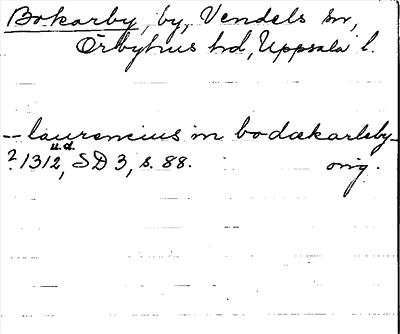 Bokarby, by, Vendels sn,
Örbyhus hd, Uppsala l.
-- laurencius in bodækarleby --
u.d.
? 1312, SD 3, s. 88. orig.